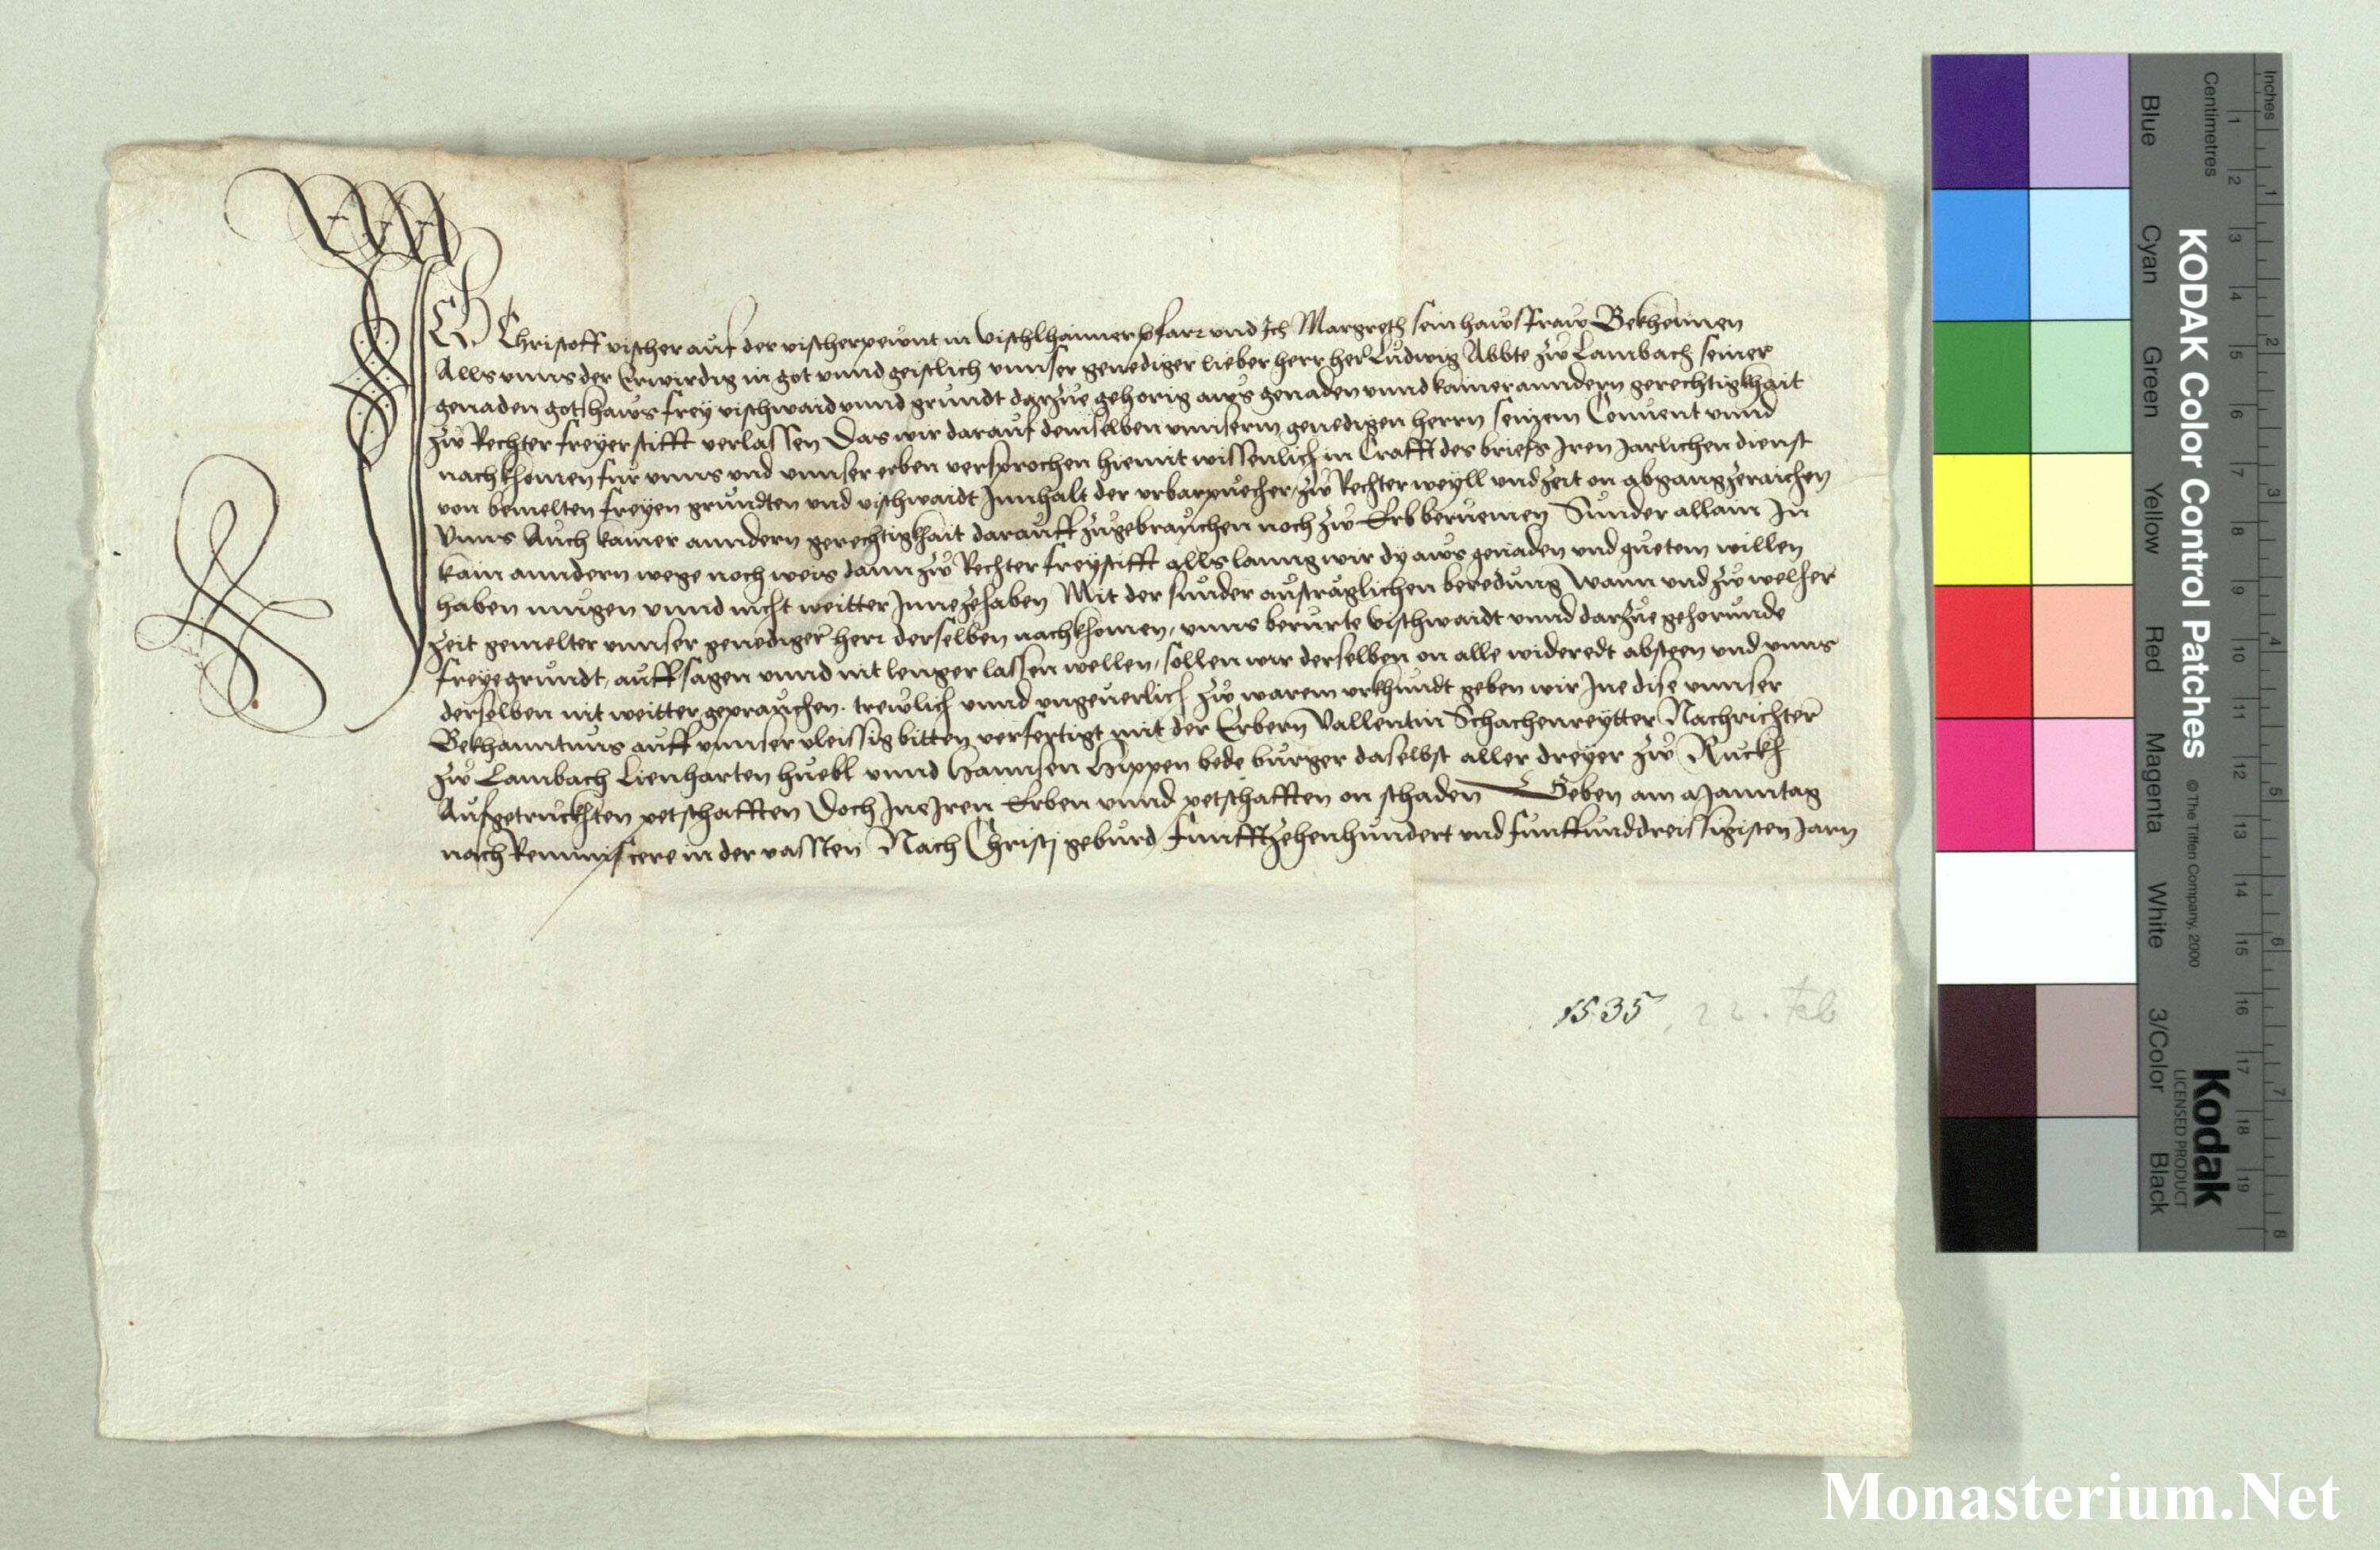 ICh Christoff vischer auf der vischerpewnt in vischlhaimer pfarr und Ich Margreth sein hawsfraw Bekhennen
Alls vnns der Erwirdig in got vnnd geistlich vnnser genediger lieber herr herr Ludwig Abbte zw Lambach seiner
genaden gotshaws frey vischwaid vnnd grundt darzue gehorig aws genaden vnnd kainer anndern gerechtigkhait
zw Rechter freyer stifft verlassen Das wir darauf demselben vnnserm genedigen herrn seinem Convent vnnd
nachkhomen fur vnns vnd vnnser erben versprochen hiemit wissenlich in Crafft des briefs Iren Jarlichen dienst
von bemelten freyen grundten vnd vischwaidt Innhalt der vrbarpuecher, zw Rechter weyll vnd zeit on abgang zeraichen
Vnns Auch kainer anndern gerechtigkhait darauff zugebrauchen noch zw Erb beruemen Sunder allain In
kain anndern wege noch weis dann zw Rechter freystifft alls lanng wir dy aws genaden vnd guetem willen
haben mugen vnnd nicht weitter Innezehaben Mit der sunder austräglichen beredung Wann vnd zw welher
zeit gemelter vnnser genediger herr derselben nachkhomen, vnns berurte vischwaidt vnnd darzue gehorunde
freye grundt, auffsagen vnnd nit lenger lassen wellen, sollen wir derselben on alle wideredt absteen vnd vnns
derselben nit weitter geprauchen. trewlich vnnd vngeuerlich zw warem vrkhundt geben wir Ine dise vnnser
Bekhanntnus auff vnnser vleissig bitten verfertigt mit der Erbern Vallentin Schachenreytter Nachrichter
zw Lambach Lienharten huebl vnnd Hannsen Hippen bede burger daselbst aller dreyer zw Ruckh
Aufgetruckhten petschafften Doch Ine Iren Erben vnnd petschafften on schaden Geben am Manntag
nach Reminiscere in der vassten Nach Christj geburd Funfftzehenhundert vnd funffunddreissigisten Jarn
1535, 22. Feb
KODAK Color Control Patches
© The Tiffen Company, 2000
Kodak
LICENSED PRODUCT
Inches 1 2 3 4 5 6 7 8
Centimetres 1 2 3 4 5 6 7 8 9 10 11 12 13 14 15 16 17 18 19
Blue Cyan Green Yellow Red Magenta White 3/Color Black
Monasterium.Net